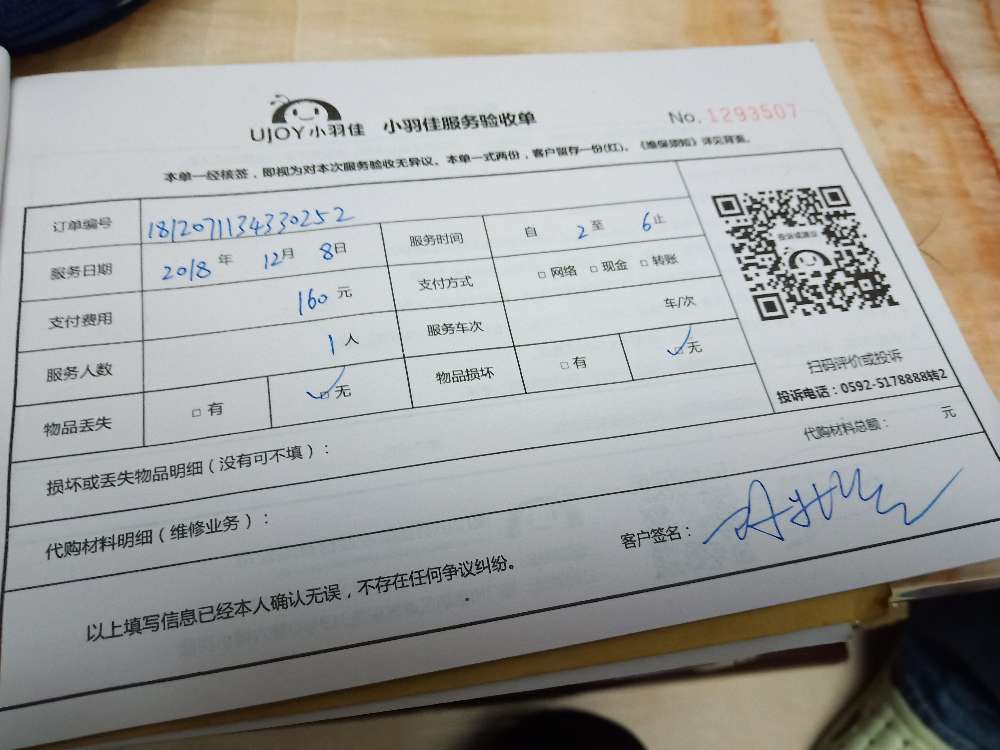 UJOY小羽佳 小羽佳服务验收单 No. 1293507
本单一经核签，即视为对本次服务验收无异议。本单一式两份，客户留存一份(红)。《维保须知》详见背面。
订单编号 1812071134330252
服务日期 2018年 12月 8日 服务时间 自 2 至 6 止
支付费用 160元 支付方式 □网络 □现金 □转账
服务人数 1人 服务车次 车/次
物品丢失 □有 ☑无 物品损坏 □有 ☑无
投诉或建议
扫码评价或投诉
投诉电话：0592-5178888转2
损坏或丢失物品明细（没有可不填）：
代购材料明细（维修业务）： 代购材料总额： 元
客户签名：
以上填写信息已经本人确认无误，不存在任何争议纠纷。